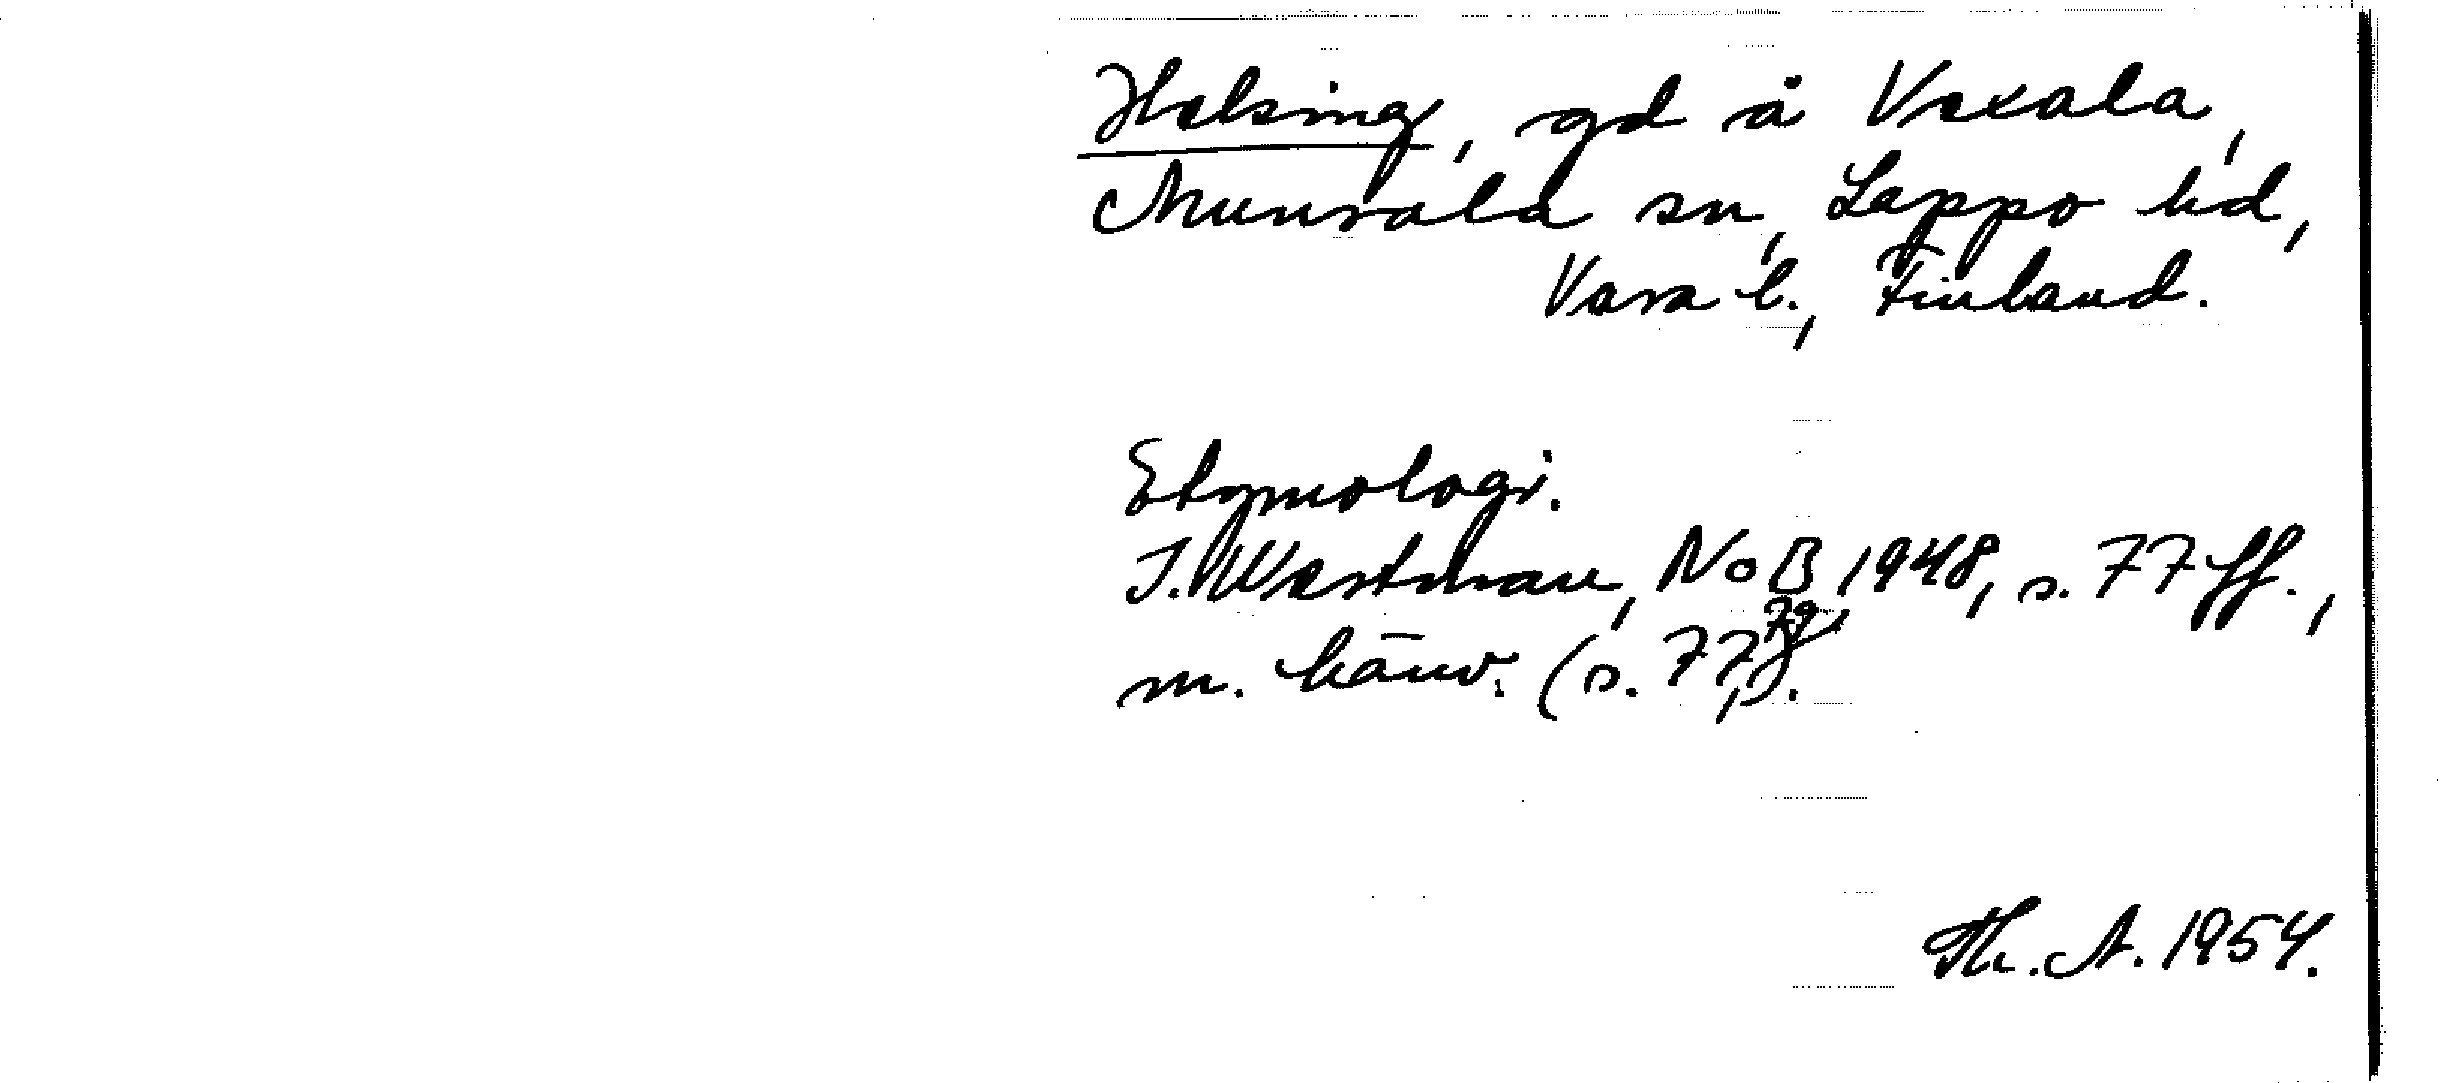 Helsing, gd å Vexala,
Munsala sn, Lappo hd,
Vasa l., Finland.
Etymologi.
I. Westman, NoB 1948, s. 77 ff.,
m. hänv. (s. 77, 79).
Th. A. 1954.